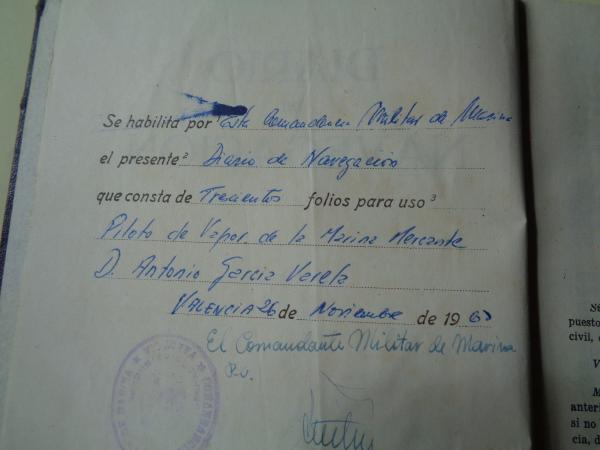 Se habilita por ¹ Esta Comandancia Militar de Marina
el presente ² Diario de Navegación
que consta de Trescientos folios para uso ³
Piloto de Vapor de la Marina Mercante
D. Antonio Garcia Varela
VALENCIA 26 de Noviembre de 196
El Comandante Militar de Marina
puesto
civil,
anteri
si no
cia, d